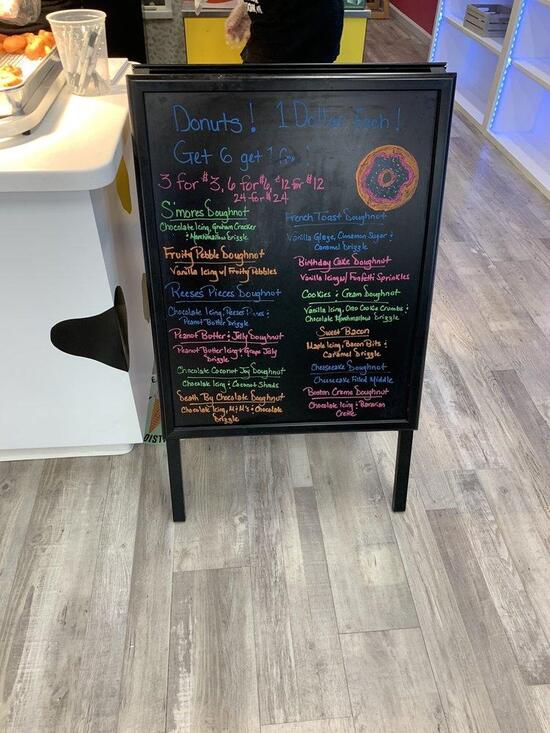 Donuts! 1 Dollar Each!
Get 6 get 1
3 for $3, 6 for $6, 12 for $12
24 for $24
S'mores Doughnot
Chocolate Icing, Graham Cracker
+ Marshmallow Drizzle
Fruity Pebble Doughnot
Vanilla Icing w/ Fruity Pebbles
Reeses Pieces Doughnot
Chocolate Icing, Reeses Pieces +
Peanut Butter Drizzle
Peanut Butter + Jelly Doughnot
Peanut Butter Icing + Grape Jelly
Drizzle
Chocolate Coconut Joy Doughnot
Chocolate Icing + Coconut Shreds
Death By Chocolate Doughnot
Chocolate Icing, M+M's + Chocolate
Drizzle
French Toast Doughnot
Vanilla Glaze, Cinnamon Sugar +
Caramel Drizzle
Birthday Cake Doughnot
Vanilla Icing w/ Funfetti Sprinkles
Cookies + Cream Doughnot
Vanilla Icing, Oreo Cookie Crumbs +
Chocolate Marshmallow Drizzle
Sweet Bacon
Maple Icing, Bacon Bits +
Caramel Drizzle
Cheesecake Doughnot
Cheesecake Filled Middle
Boston Creme Doughnot
Chocolate Icing + Bavarian
Creme
DIST